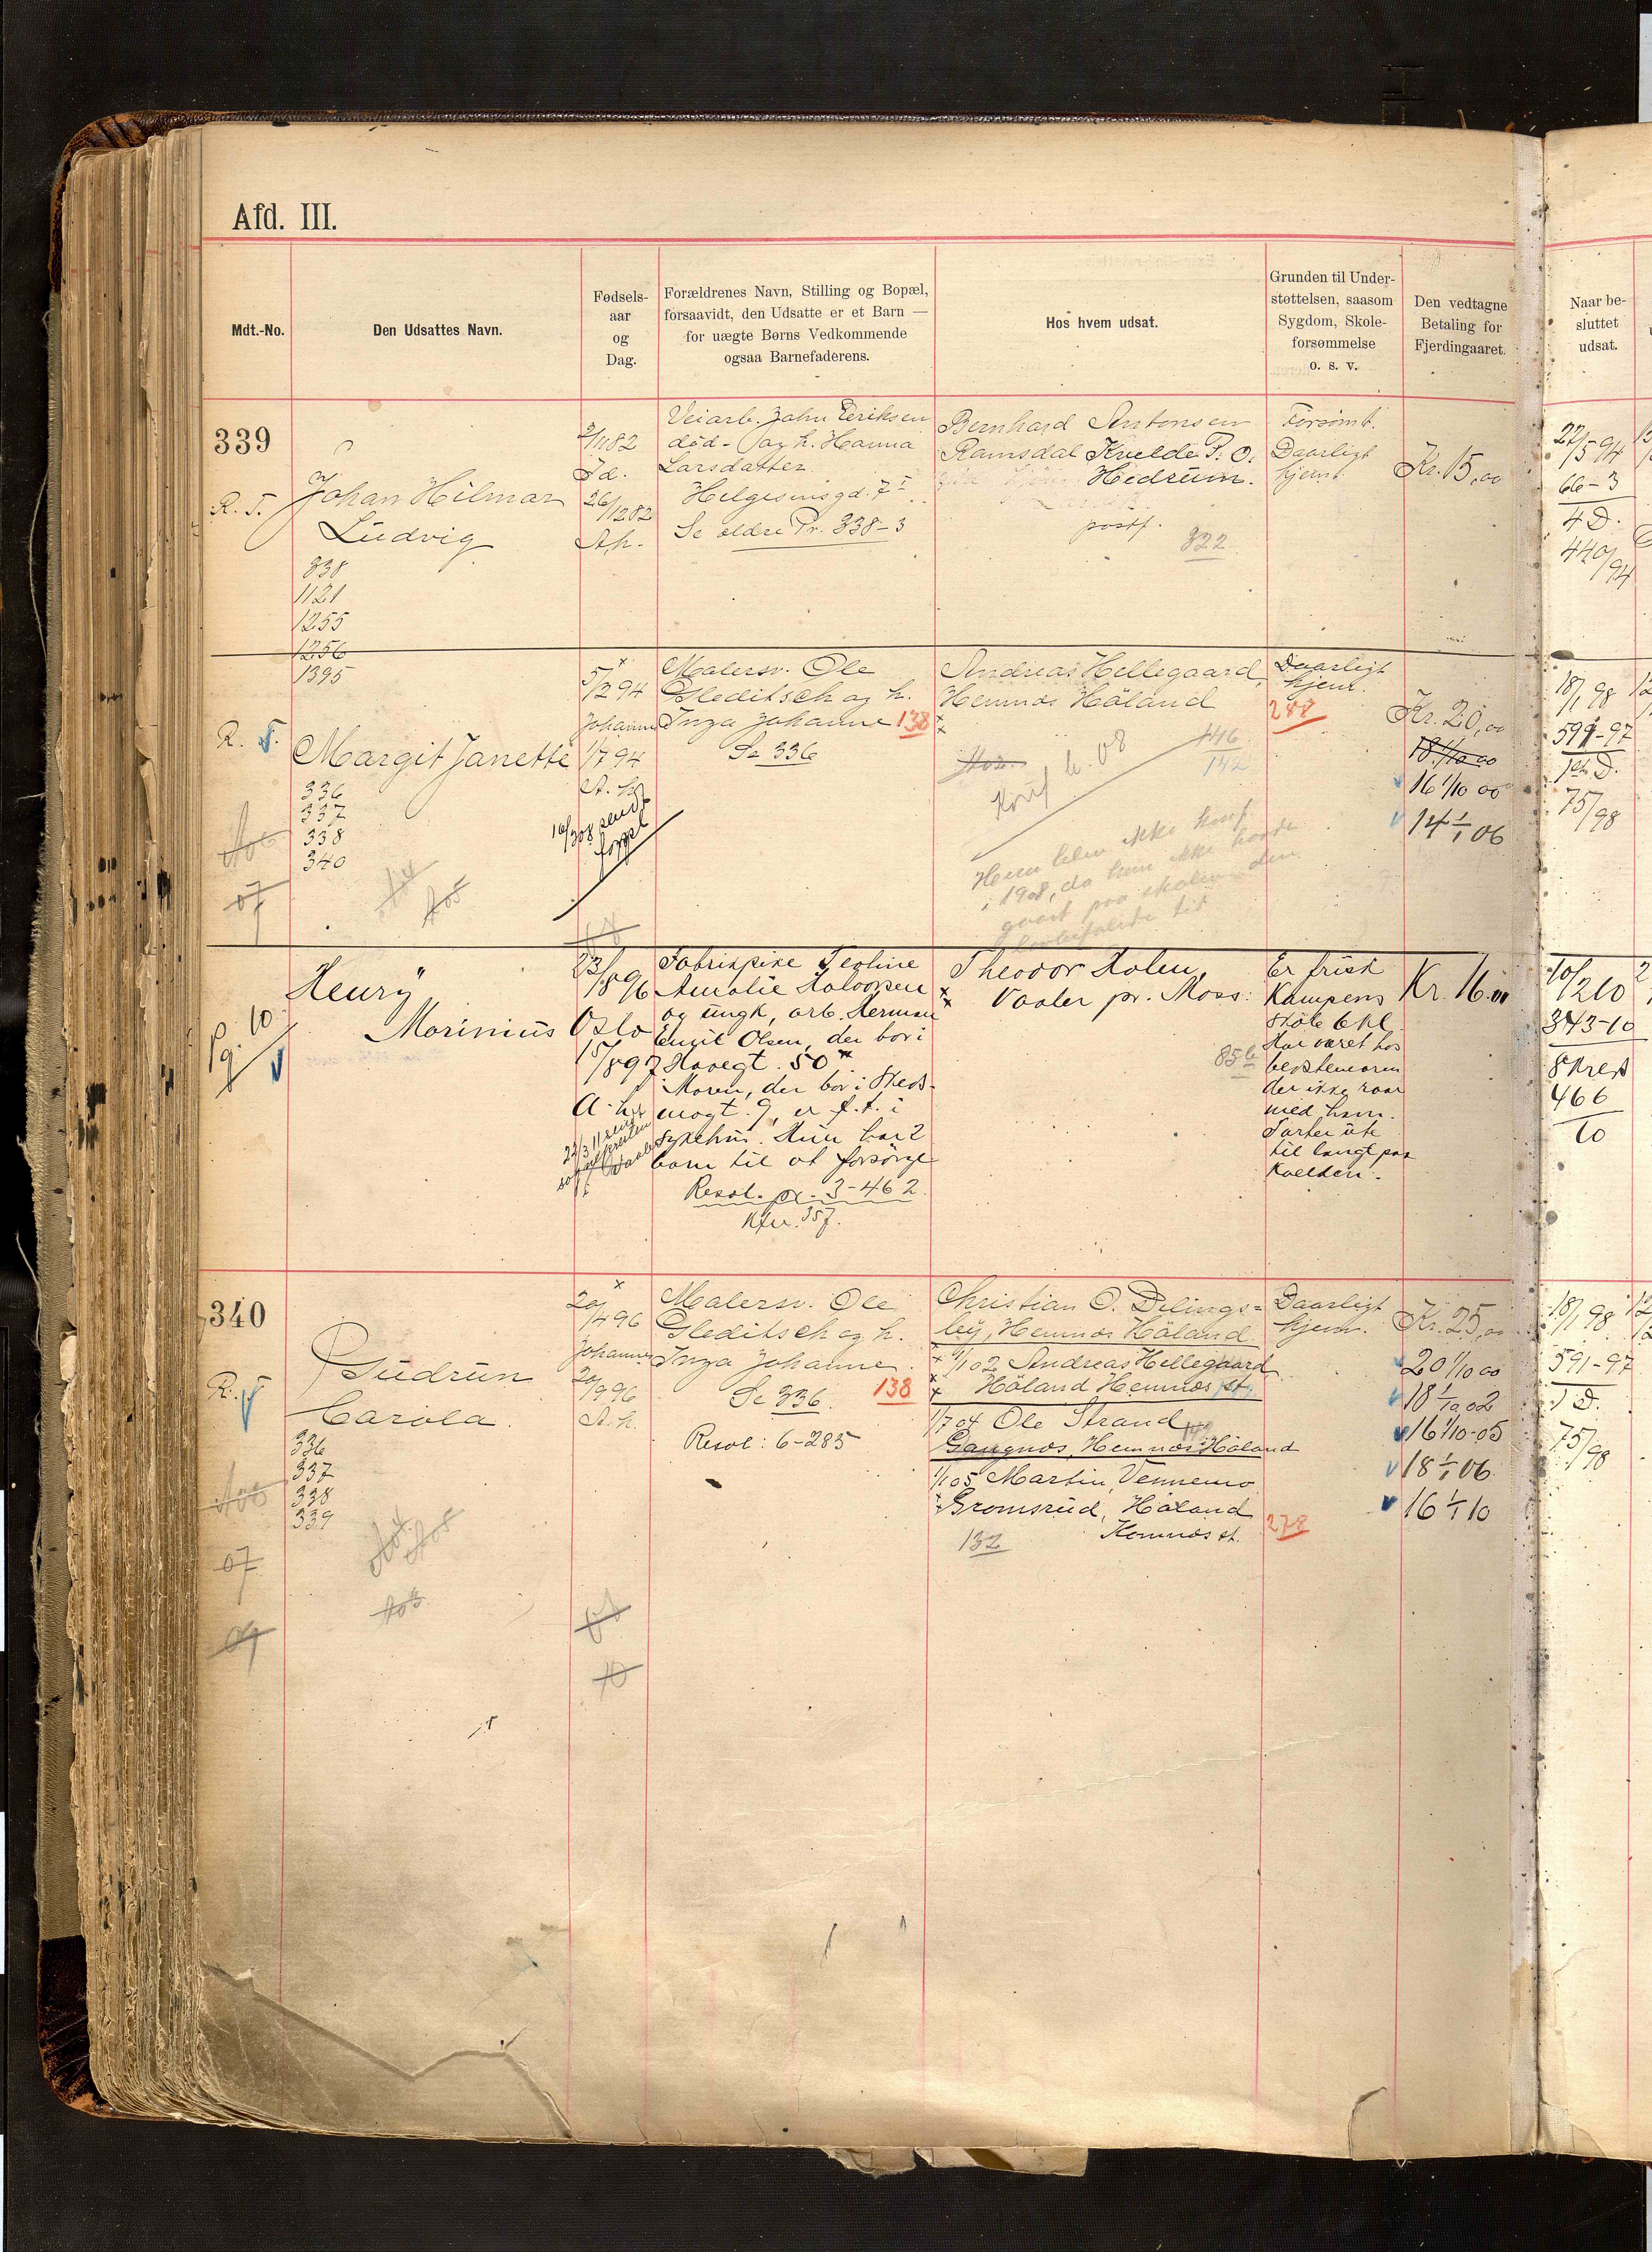 Afd. III.
Mdt.-No.
Den Udsattes Navn.
Fødsels-
aar
og
Dag.
Forældrenes Navn, Stilling og Bopæl,
forsaavidt, den Udsatte er et Barn —
for uægte Børns Vedkommende
ogsaa Barnefaderens.
Hos hvem udsat.
Grunden til Under-
støttelsen, saasom
Sygdom, Skole-
forsømmelse
o. s. v.
Den vedtagne
Betaling for
Fjerdingaaret.
Naar be-
sluttet
udsat.
339
R. T.
Johan Hilmar
Ludvig
338
1121
1255
1256
1395
2/11 82
Jd.
26/12 82
A.h.
Veiarb. John Eriksen
död - og h. Hanna
Larsdatter
Helgesensgd. 7
Se eldre Pr. 338-3
Bernhard Antonsen
Ramsdal Kvelde P. O.
Hedrum.
postf.
322
Forsömt.
Daarligt
hjem.
Kr. 15,00
22/5 94
66-3
4 D.
440/94
R.
Margit Janette
336
337
338
340
07
5/2 94
Johannes
1/7 94
A. h.
Malersv. Ole
Gleditsch og h.
Inga Johanne 138
Se 336
16/3 08 sendt
Andreas Hellegaard,
Hemnes Höland
446
142
Konf. 08
Hun blev ikke konf.
i 1908, da hun ikke havde
gaaet paa skolen den
tid
Daarligt
hjem.
288
Kr. 20,00
18 1/10 00
16 1/10 00
14 1/1 06
18/1 98
591-97
1 D.
75/98
Henry
Marinius
Pg. 10.
23/8 96
Oslo
15/8 97
A. h.
Fabrikpike Teoline
Amalie Halvorsen
og ungk, arb. Herman
Emil Olsen, der bor i
Havegt. 50
Moren, der bor i Heds-
mogt. 9, er f. t. i
sykehus. Hun har 2
barn til at forsörge
Resol. pr. 3-462.
Kfr. 357.
Theodor Holen,
Vaaler pr. Moss.
856
Er frisk
Kampens
skole 6 kl.
Har været hos
bestemoren
der ikke raar
med ham.
Farter ute
til langt paa
kvelden.
Kr. 16.00
10/2 10
343-10
8 Kreds
466
10
340
R.
Gudrun
Carola.
336
337
338
339
07
09
20/4 96
Johannes
20/9 96
A. h.
Malersv. Ole
Gleditsch og h.
Inga Johanne.
Se 336. 138
Resol: 6-285
Christian O. Delings-
ley, Hemnes Höland
1/1 02 Andreas Hellegaard
Höland Hemnes st.
1/7 04 Ole Strand
Gangnæs, Hemnes Höland
1/1 05 Martin Vennemo
Gromsrud, Höland
Hemnes st.
132
278
Daarligt
hjem.
Kr. 25,00
20 1/10 00
18 1/10 02
16 1/10-05
18 1/1 06
16 1/1 10
18/1 98
591-97
1 D.
75/98